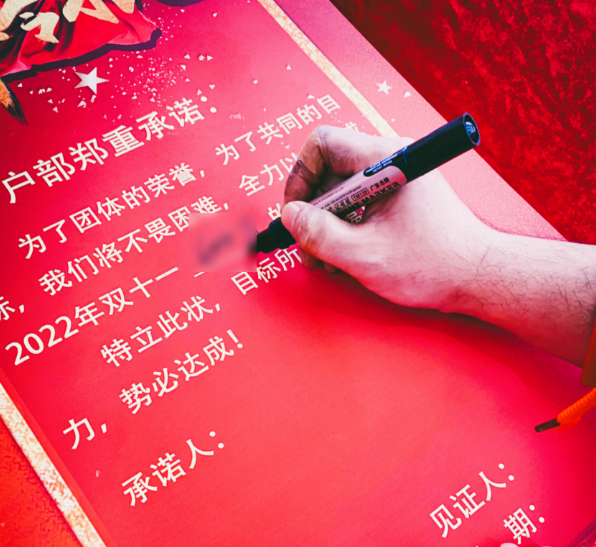 户部郑重承诺：
为了团体的荣誉，为了共同的目
标，我们将不畏困难，全力以
2022年双十一 的
特立此状，目标所
力，势必达成！
承诺人：
见证人：
期：